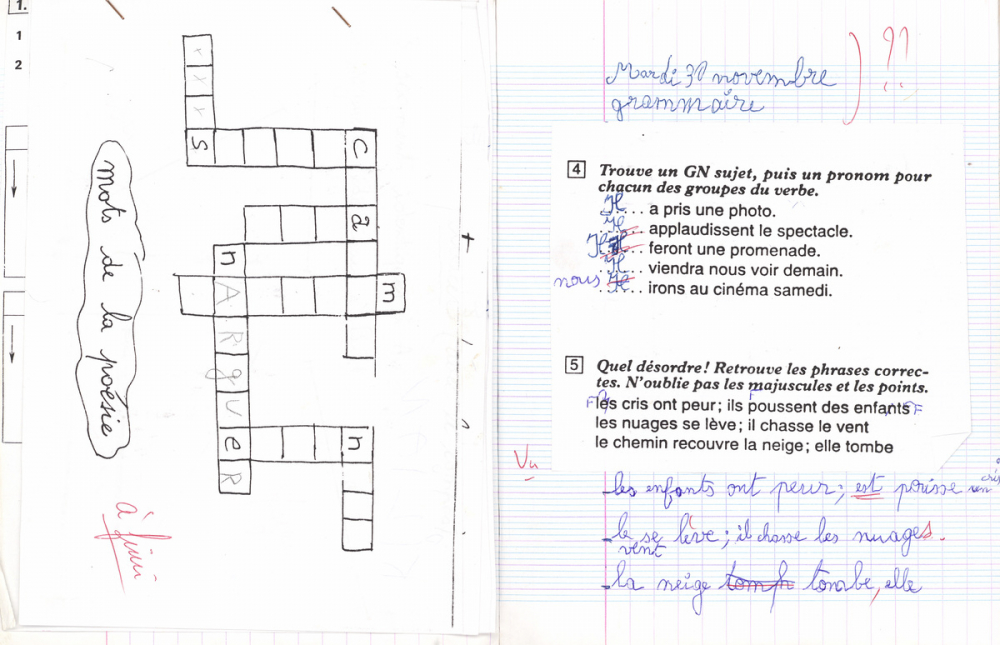 1.
1
2
s c
a
n
m
A
R
g
U
e n
R
mots de la poésie
à finir
Mardi 30 novembre
grammaire
??
4 Trouve un GN sujet, puis un pronom pour
chacun des groupes du verbe.
Il.... a pris une photo.
Il.... applaudissent le spectacle.
Il.... feront une promenade.
Il.... viendra nous voir demain.
nous Il.... irons au cinéma samedi.
5 Quel désordre! Retrouve les phrases correc-
tes. N'oublie pas les majuscules et les points.
les cris ont peur; ils poussent des enfants
les nuages se lève; il chasse le vent
le chemin recouvre la neige; elle tombe
Vu
-les enfants ont peur; est pousse un cris
-le vent se lève; il chasse les nuages.
-la neige tombe, elle